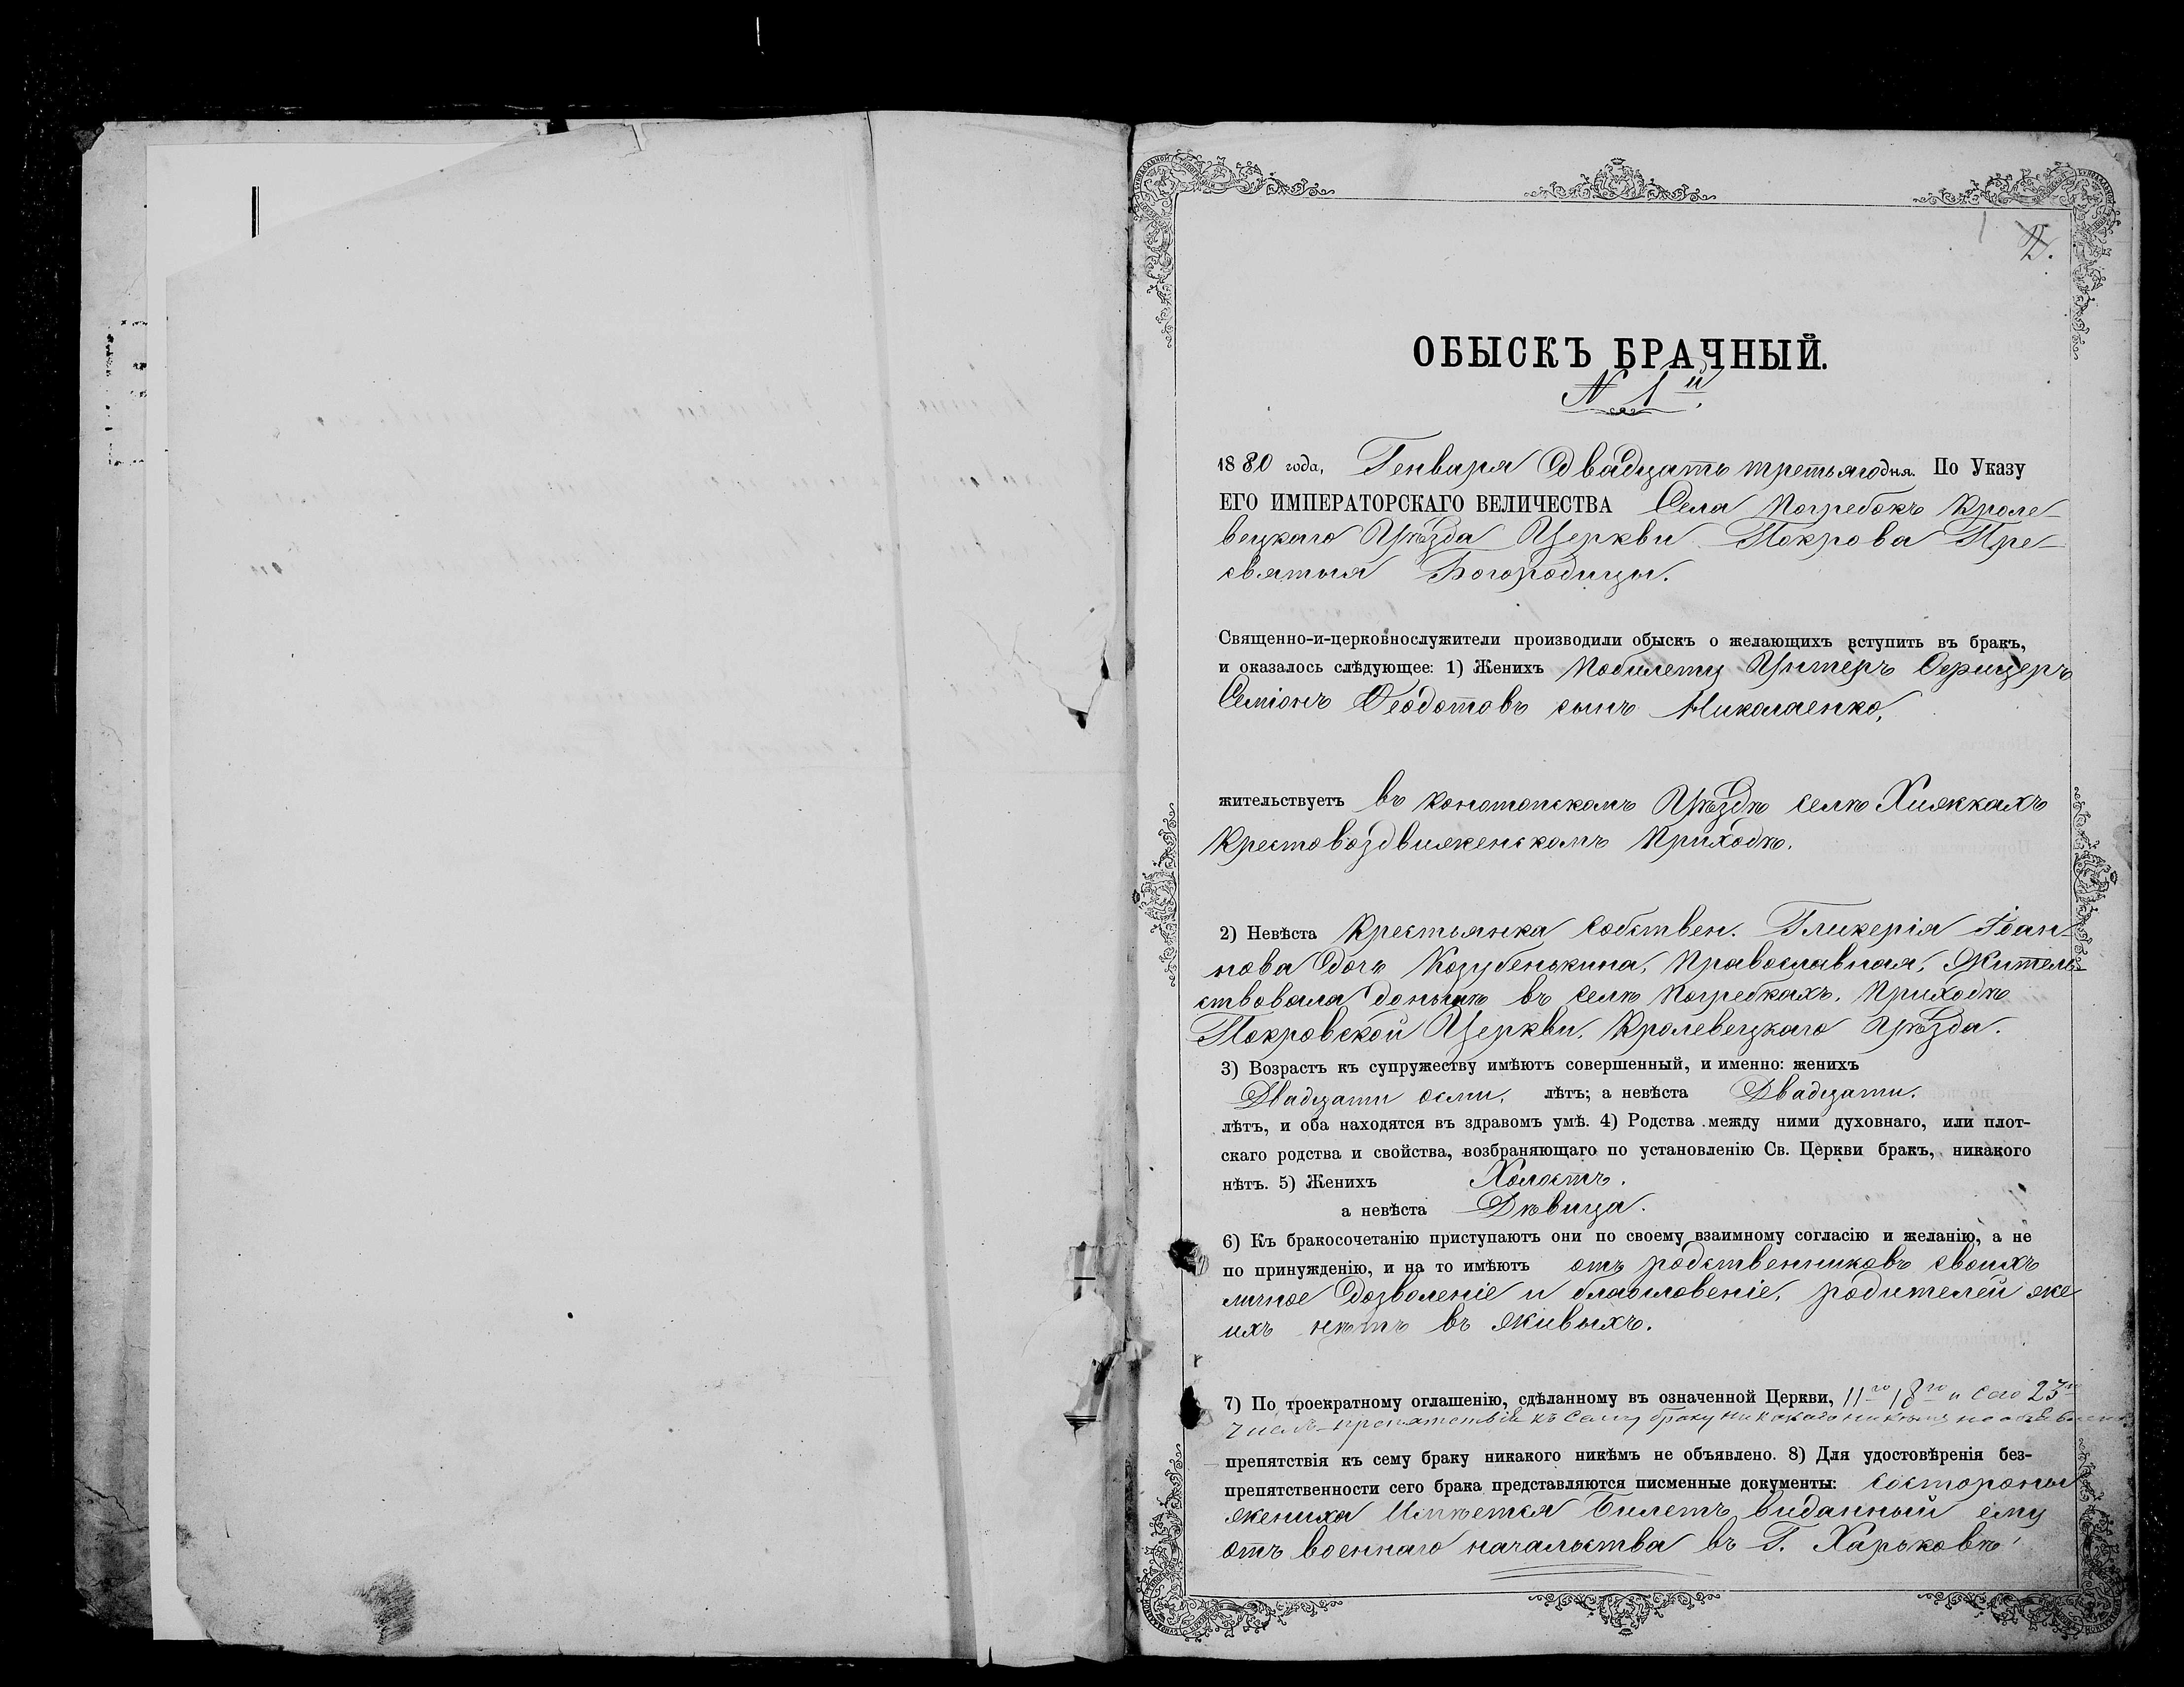 1
ОБЫСКЪ БРАЧНЫЙ.
N 1й
1880 года, Генваря двадцать третьяго дня. По Указу
ЕГО ИМПЕРАТОРСКАГО ВЕЛИЧЕСТВА Села Погребокъ Кроле-
вецкаго Уѣзда Церкви Покрова Пре-
святыя Богородицы.
Священно-и-церковнослужители производили обыскъ о желающихъ вступить въ бракъ,
и оказалось слѣдующее: 1) Женихъ По билету Унтеръ Офицеръ
Семіонъ Феодотовъ сынъ Николаенко,
жительствуетъ въ Конотопскомъ Уѣздѣ селѣ Хижкахъ
Крестовоздвиженскомъ Приходѣ.
2) Невѣста Крестьянка собствен. Гликерія Іоан-
нова дочь Козубенькина, Православная, Житель-
ствовала донынѣ въ селѣ Погребкахъ, Приходѣ
Покровской Церкви, Кролевецкаго Уѣзда.
3) Возрастъ къ супружеству имѣютъ совершенный, и именно: женихъ
Двадцати осми, лѣтъ; а невѣста Двадцати.
лѣтъ, и оба находятся въ здравомъ умѣ. 4) Родства между ними духовнаго, или плот-
скаго родства и свойства, возбраняющаго по установленію Св. Церкви бракъ, никакого
нѣтъ. 5) Женихъ Холостъ.
а невѣста Дѣвица.
6) Къ бракосочетанію приступаютъ они по своему взаимному согласію и желанію, а не
по принужденію, и на то имѣютъ отъ родственниковъ своихъ
личное дозволеніе и благословеніе, родителей же
ихъ нѣтъ въ живыхъ.
7) По троекратному оглашенію, сдѣланному въ означенной Церкви, 11го 18го и сего 23го
числ препятствія къ сему браку никакого никѣмъ не объявлено
препятствія къ сему браку никакого никѣмъ не объявлено. 8) Для удостовѣренія без-
препятственности сего брака представляются писменные документы: состороны
жениха Имѣется Билетъ виданный ему
отъ военнаго начальства въ Г. Харьковѣ